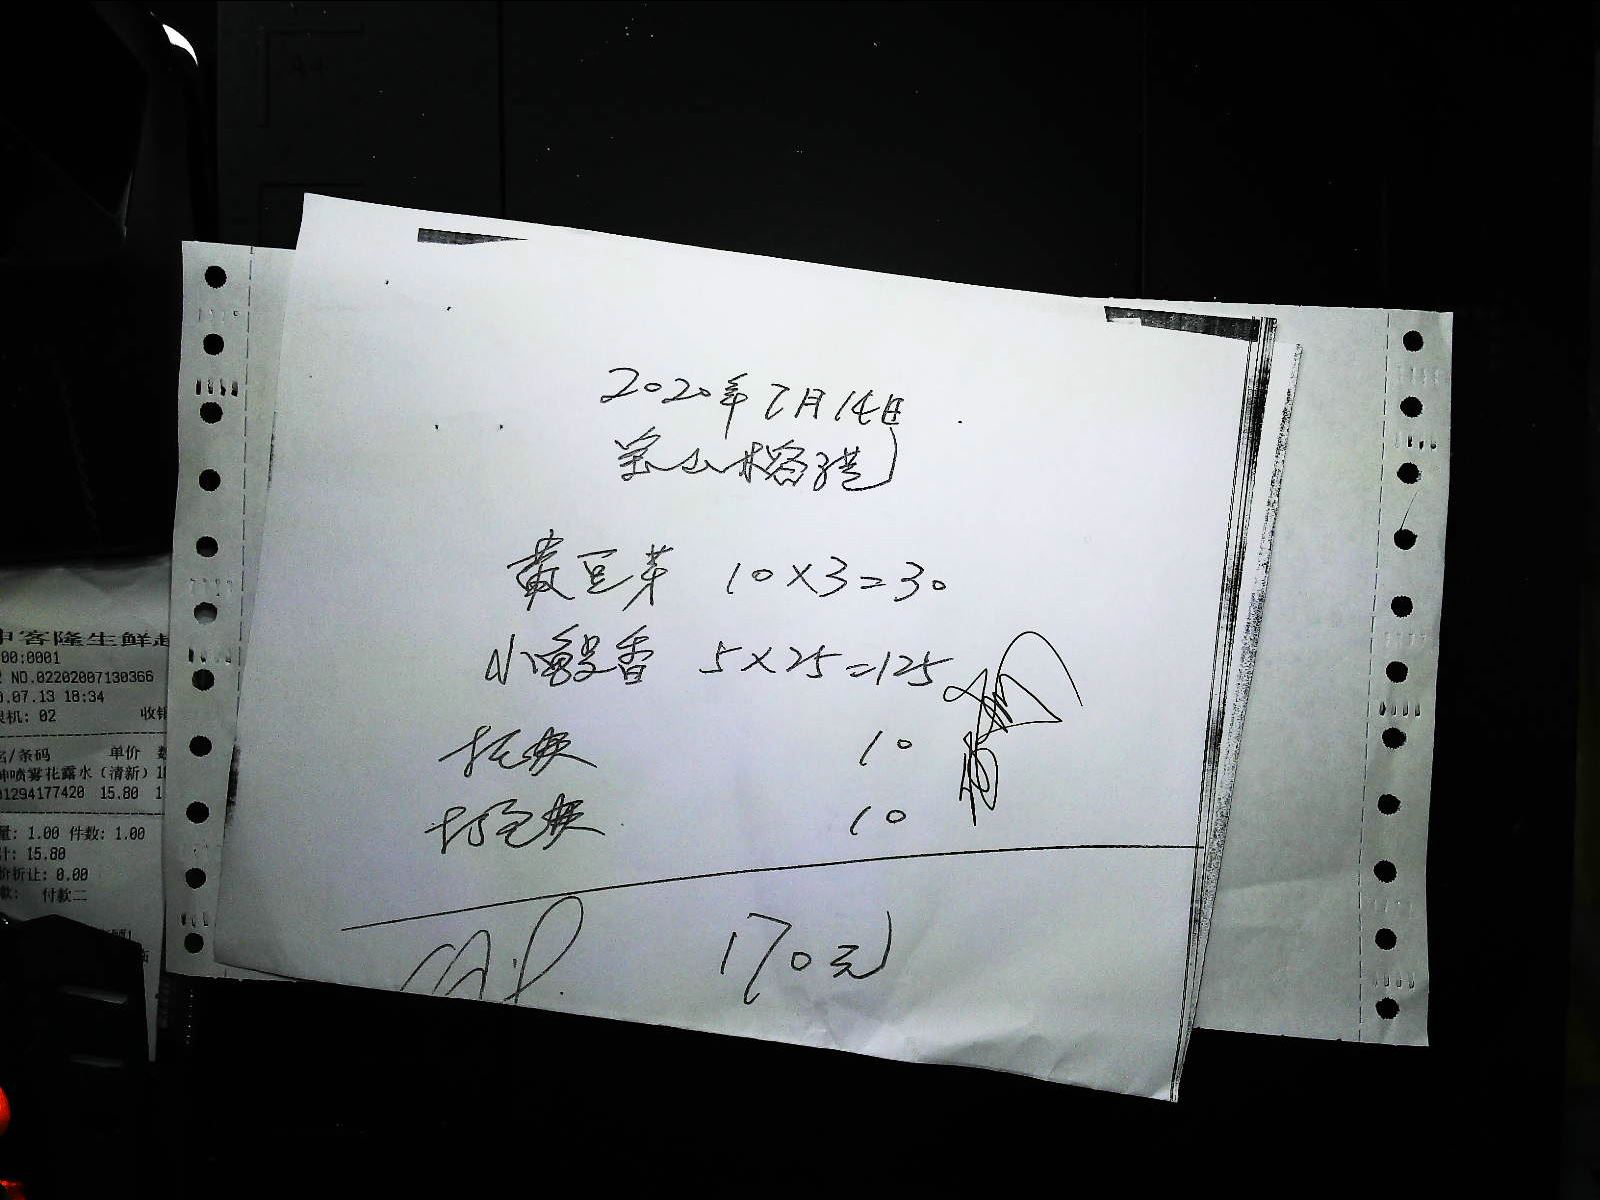 2020年7月14日
宝山榕港
黄豆芽 10×3=30
小 香 5×25=125
10
10
170元
客隆生鲜超
00:0001
NO.02202007130366
.07.13 18:34
机: 02 收银
名/条码 单价 数
喷雾花露水（清新）1
01294177420 15.80 1
量: 1.00 件数: 1.00
计: 15.80
价折让: 0.00
款: 付款二